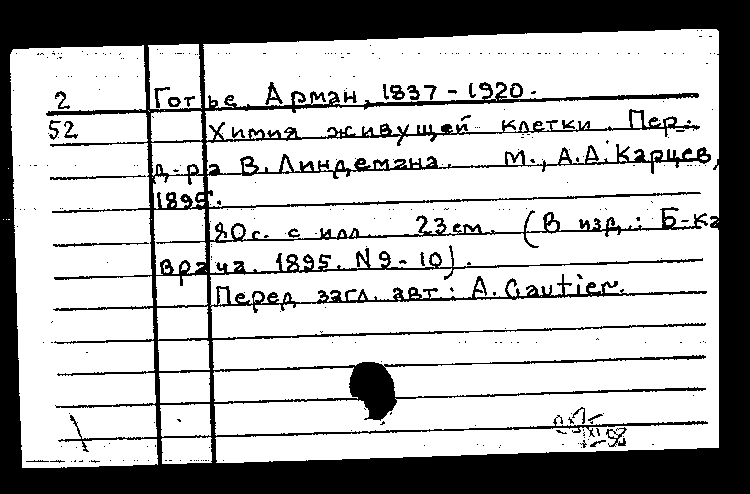 2 Готье, Арман, 1837-1920.
52 Химия живущей клетки. Пер.
д-ра В. Линдемана. М., А.А. Карцев,
1895.
80с. с илл. 23см. (В изд.: Б-ка
врача. 1895. N9-10).
Перед загл. авт.: A. Gautier.